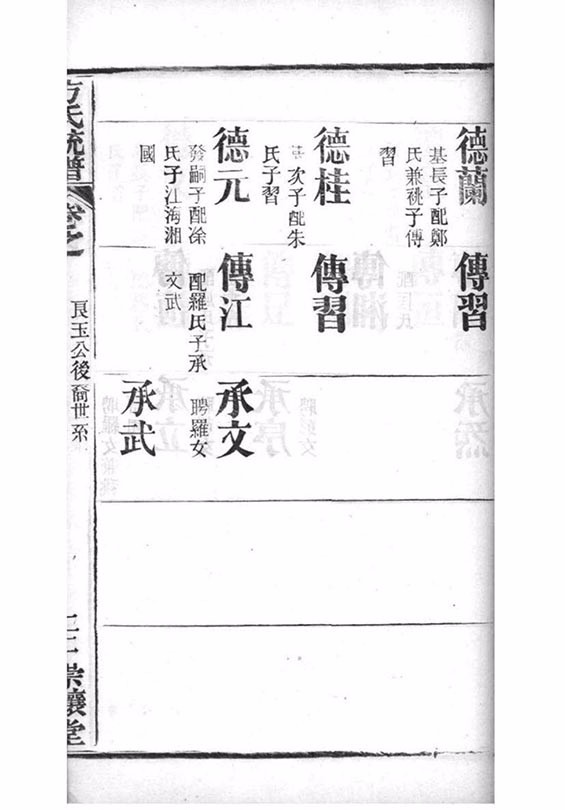 德蘭
基長子配鄭
氏兼祧子傳
習
德桂
次子配朱
氏子習
德元
發嗣子配凃
氏子江海湘
國
傳習
傳習
傳江
配羅氏子承
文武
承文
聘羅女
承武
方氏統譜
卷之
良玉公後裔世系
崇讓堂